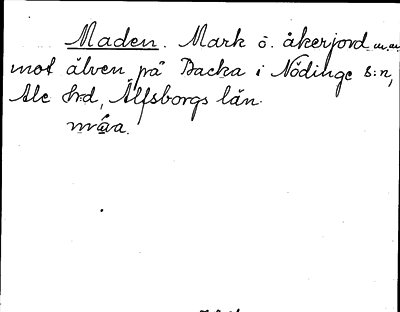 Maden. Mark o. åkerjord m.m.
mot älven på Backa i Nödinge s:n,
Ale hd, Älfsborgs län.
måa.